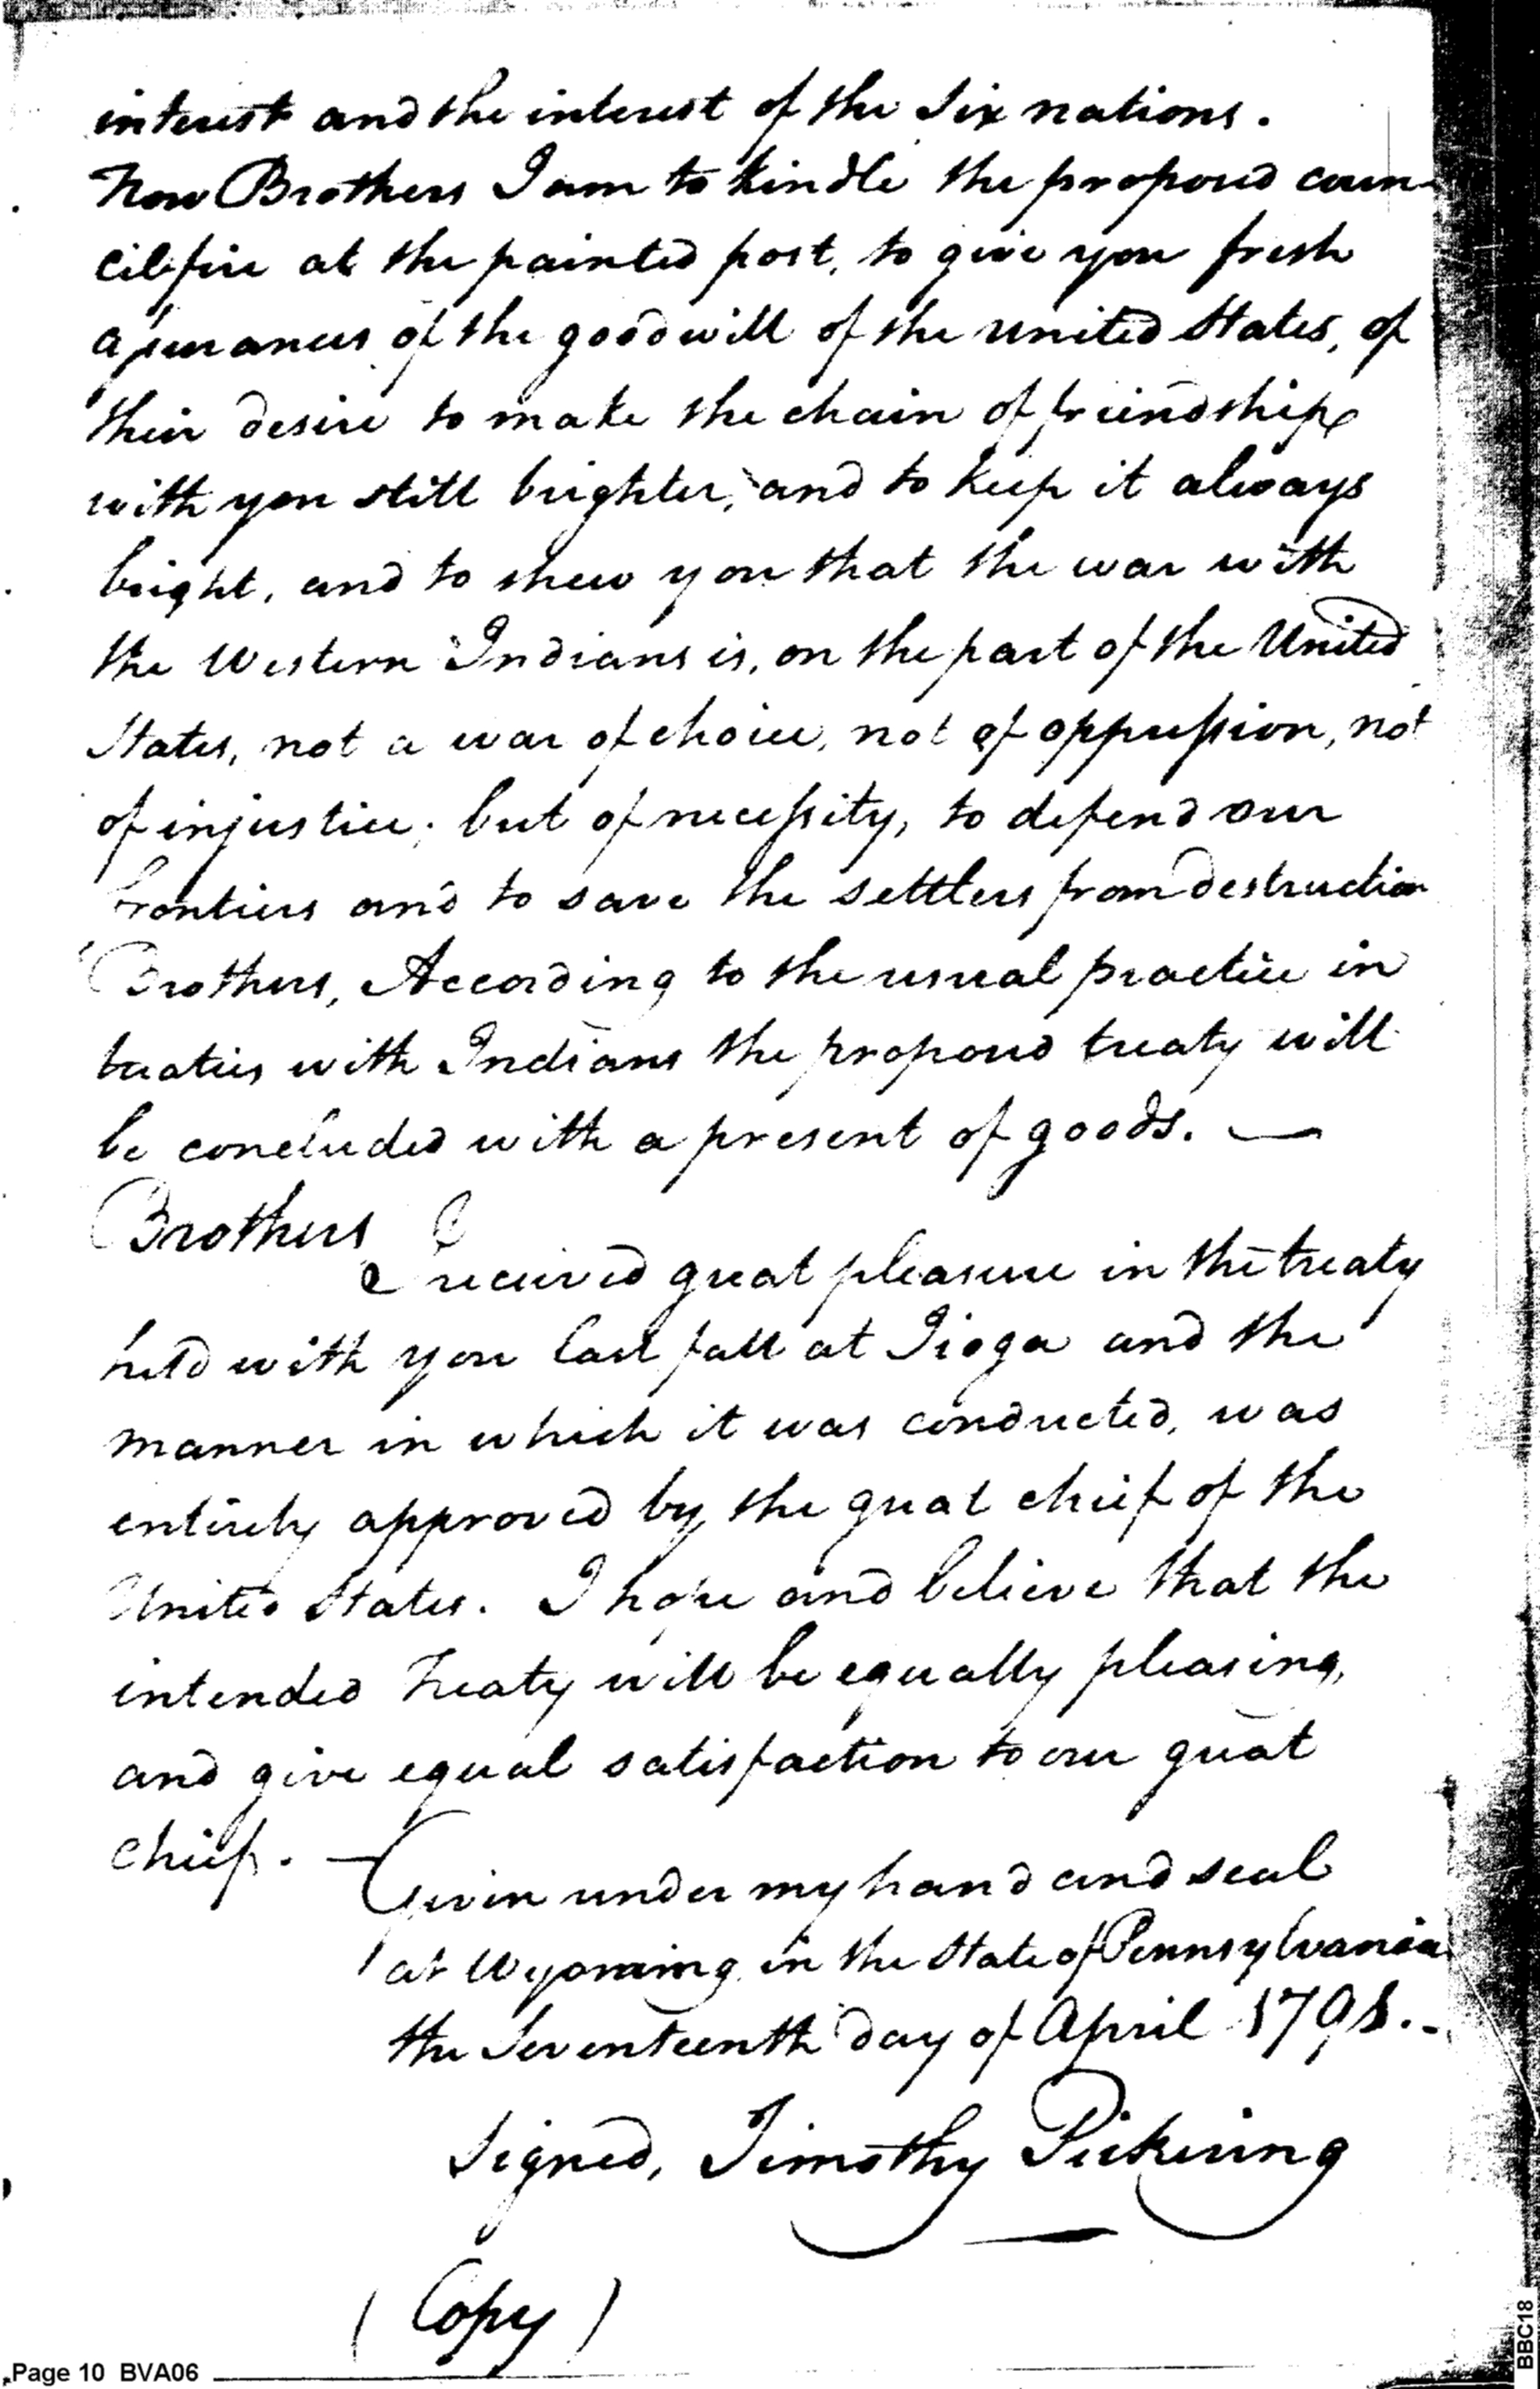 interest and the interest of the Six nations.
Now Brothers I am to kindle the proposed coun-
cil fire at the painted post, to give you fresh
assurances of the good will of the united States, of
their desire to make the chain of friendship
with you still brighter, and to keep it always
bright, and to shew you that the war with
the Western Indians is, on the part of the United
States, not a war of choice, not of oppression, not
of injustice; but of necessity, to defend our
frontiers and to save the settlers from destruction
Brothers, According to the usual practice in
treaties with Indians the proposed treaty will
be concluded with a present of goods. —
Brothers
I received great pleasure in the treaty
held with you last fall at Tioga and the
manner in which it was conducted, was
entirely approved by the great chief of the
United States. I hope and believe that the
intended Treaty will be equally pleasing,
and give equal satisfaction to our great
chief. —
Given under my hand and seal
at Wyoming in the State of Pennsylvania
the Seventeenth day of April 1791.-
Signed, Timothy Pickering
(Copy)
Page 10 BVA06
BBC18